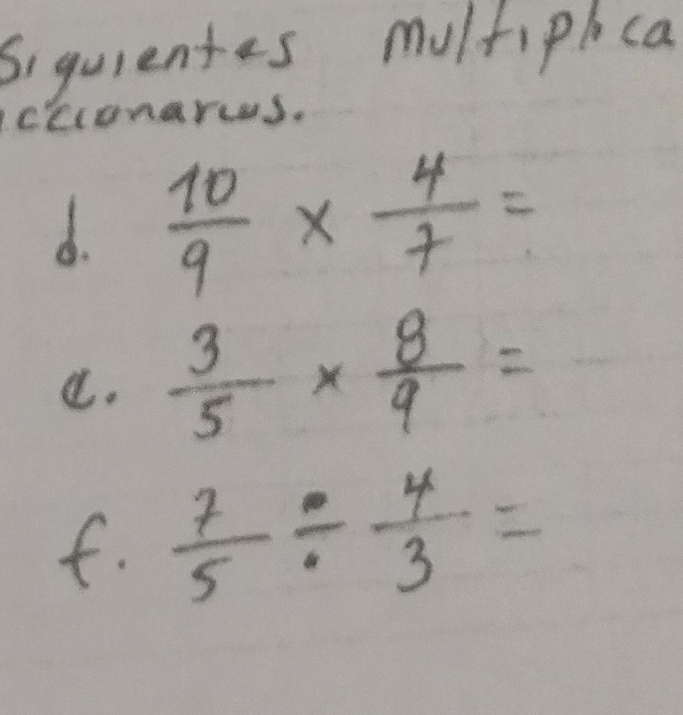 Siguientes multiplica
iccionarios.
d. 10/9 × 4/7 =
e. 3/5 × 8/9 =
f. 7/5 ÷ 4/3 =